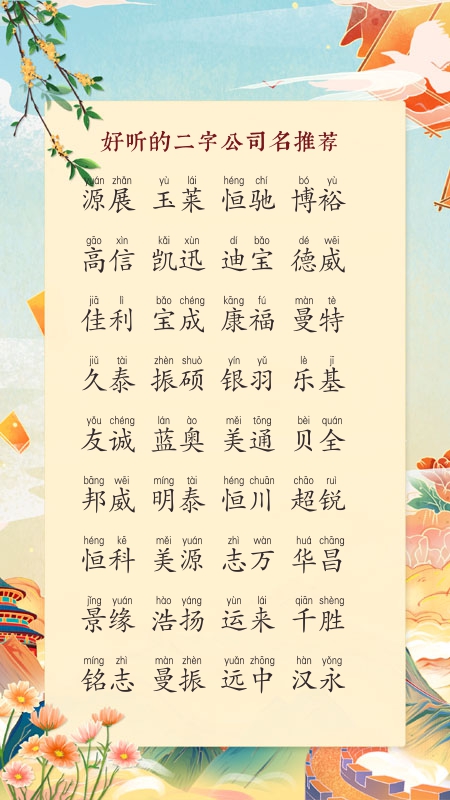 好听的二字公司名推荐
yuán zhǎn yù lái héng chí bó yù
源展 玉莱 恒驰 博裕
gāo xìn kǎi xùn dí bǎo dé wēi
高信 凯迅 迪宝 德威
jiā lì bǎo chéng kāng fú màn tè
佳利 宝成 康福 曼特
jiǔ tài zhèn shuò yín yǔ lè jī
久泰 振硕 银羽 乐基
yǒu chéng lán ào měi tōng bèi quán
友诚 蓝奥 美通 贝全
bāng wēi míng tài héng chuān chāo ruì
邦威 明泰 恒川 超锐
héng kē měi yuán zhì wàn huá chāng
恒科 美源 志万 华昌
jǐng yuán hào yáng yùn lái qiān shèng
景缘 浩扬 运来 千胜
míng zhì màn zhèn yuǎn zhōng hàn yǒng
铭志 曼振 远中 汉永